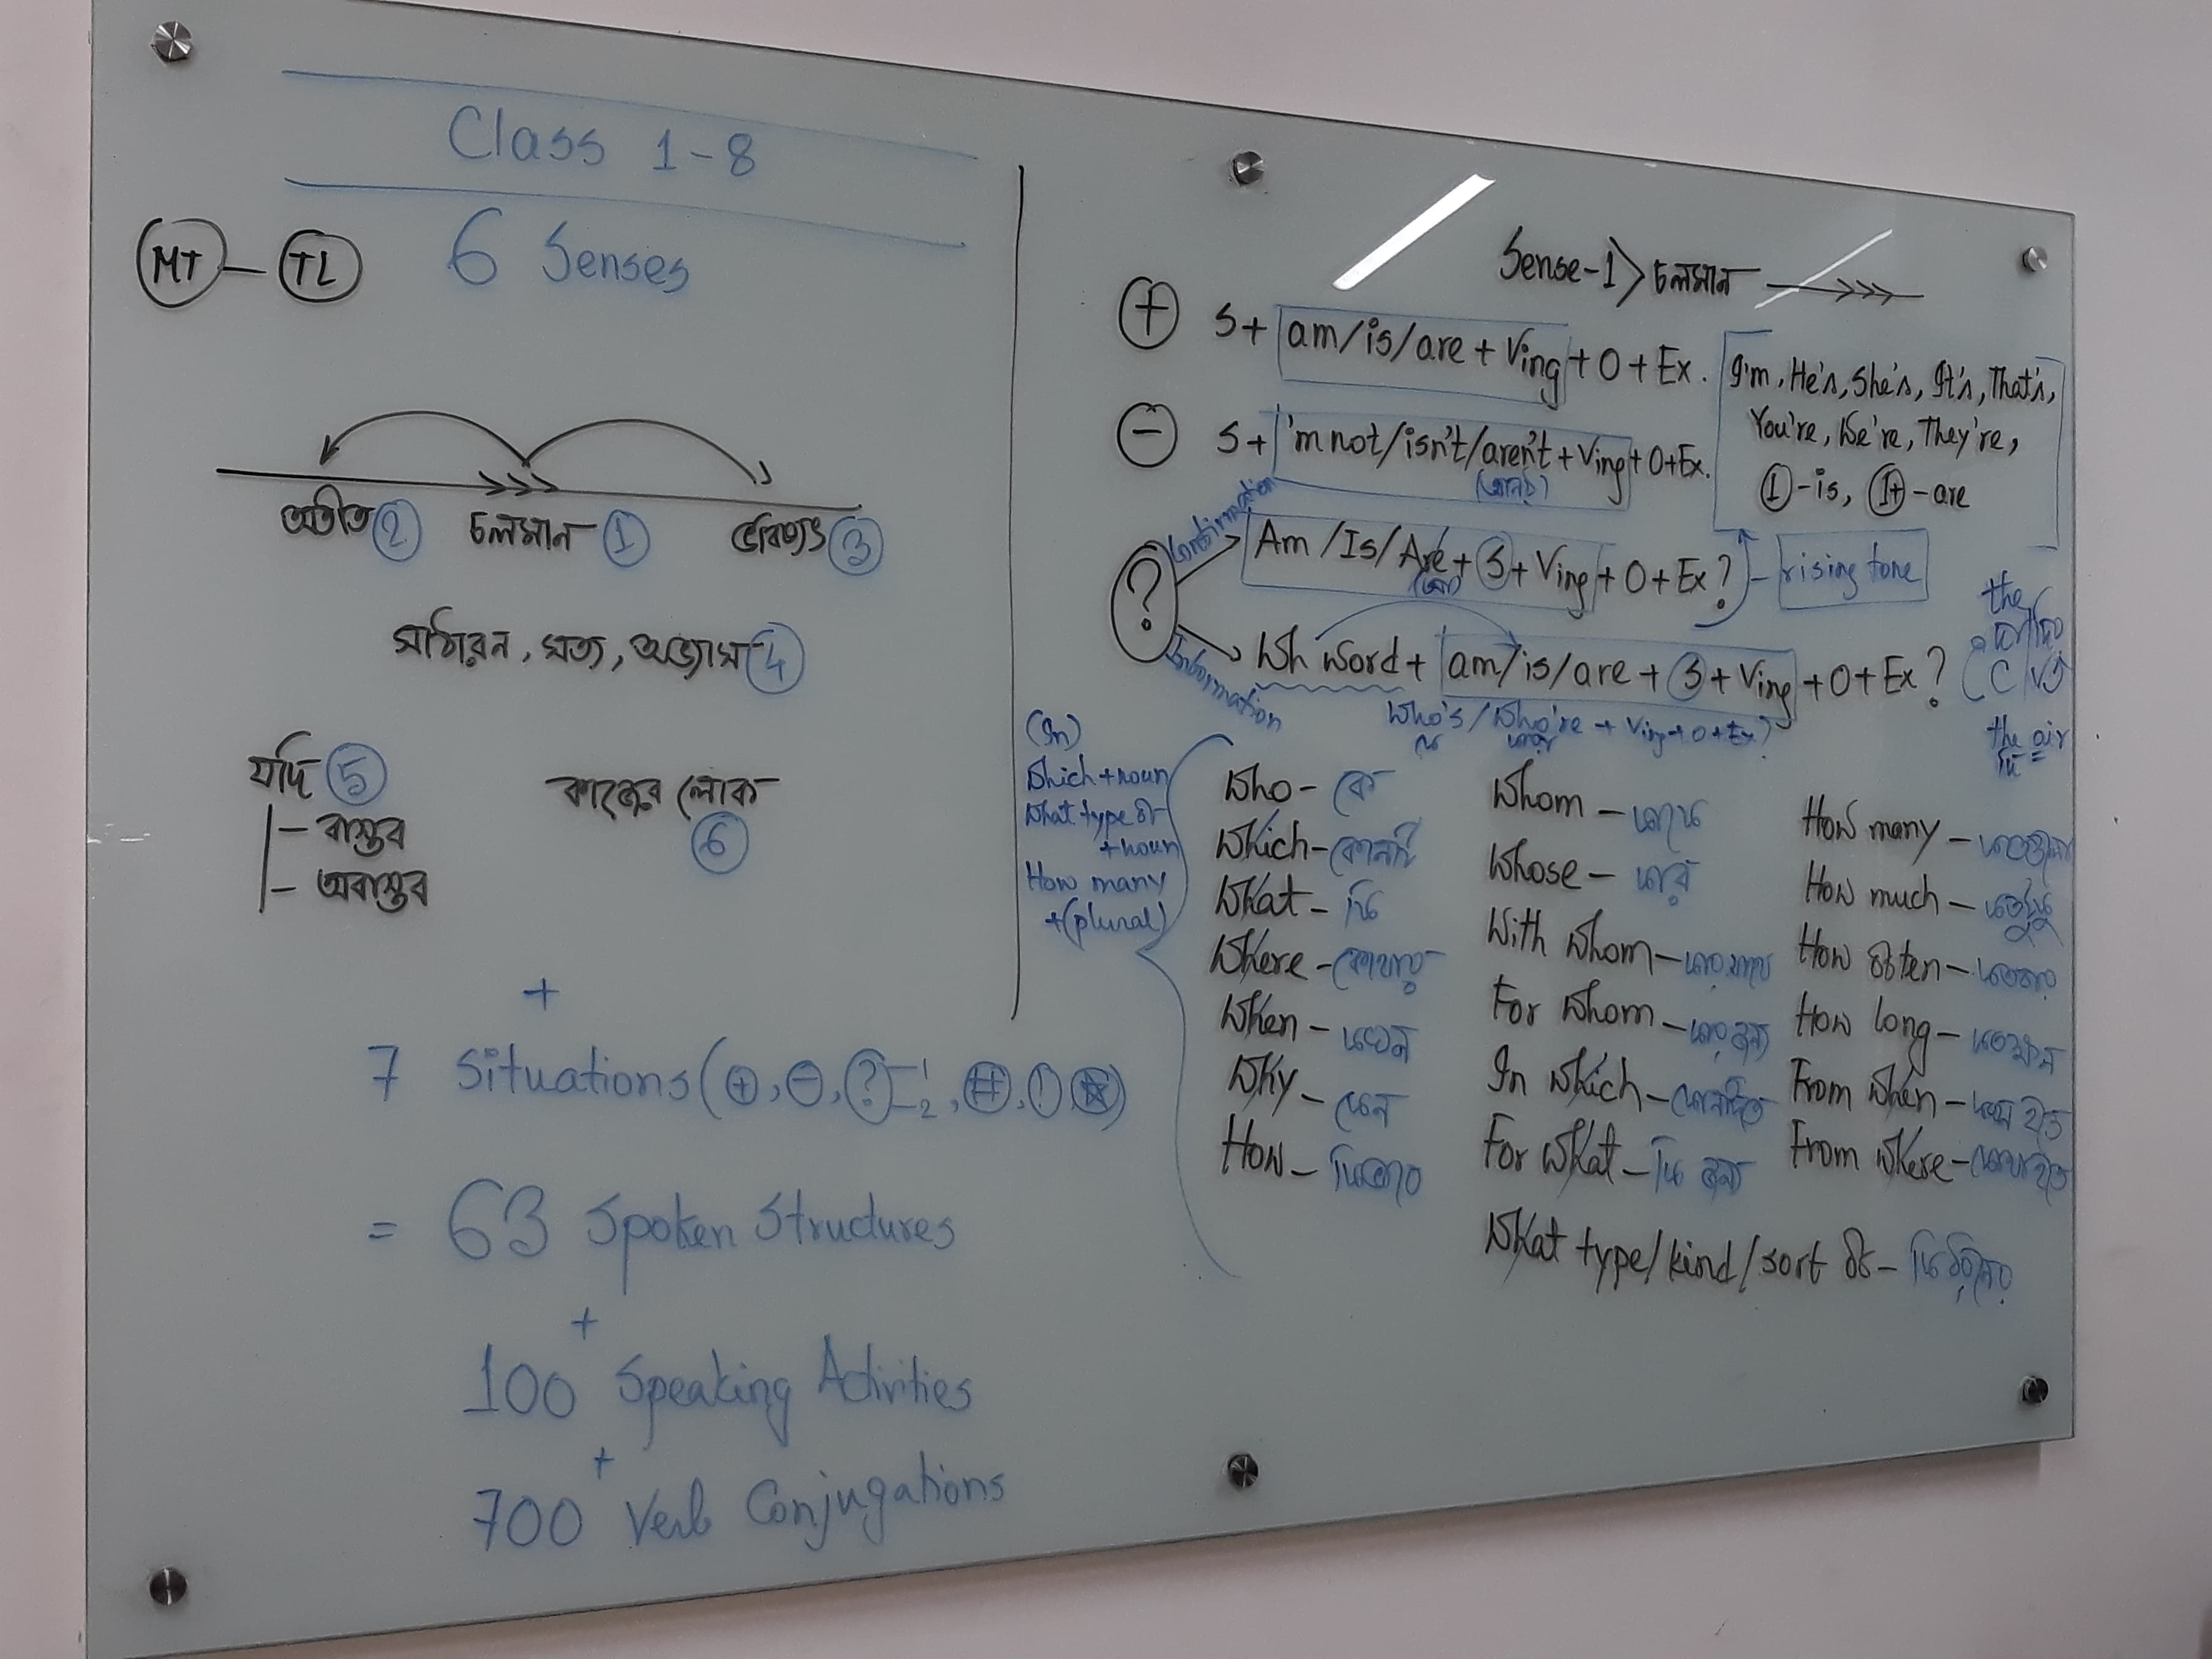 Class 1-8
MT — TL
6 Senses
অতীত 2 চলমান 1 ভবিষ্যৎ 3
সাধারন, সত্য, অভ্যাস 4
যদি 5
- বাস্তব
- অবাস্তব
কাজের লোক
6
+
7 Situations (+, -, ? -1 -2, #, !, ★)
= 63 Spoken Structures
+
100 Speaking Activities
+
700 Verb Conjugations
Sense-1 > চলমান
+ S + am/is/are + Ving + O + Ex.
- S + 'm not/isn't/aren't + Ving + O + Ex.
I'm, He's, She's, It's, That's,
You're, We're, They're,
1 - is, 1+ - are
?
Confirmation
Am/Is/Are + S + Ving + O + Ex? - rising tone
Information
Wh word + am/is/are + S + Ving + O + Ex?
Who's/Who're + Ving + O + Ex?
the
C V
the air
(In)
Which + noun
What type of
+ noun
How many
+ (plural)
Who - কে
Which - কোনটি
What - কি
Where - কোথায়
When - কখন
Why - কেন
How - কিভাবে
Whom - কাকে
Whose - কার
With whom - কার সাথে
For whom - কার জন্য
In which - কোনটিতে
For what - কি জন্য
What type/kind/sort of - কি ধরনের
How many - কতগুলো
How much - কতটুকু
How often - কতবার
How long - কতক্ষন
From when - কখন হতে
From where - কোথা হতে